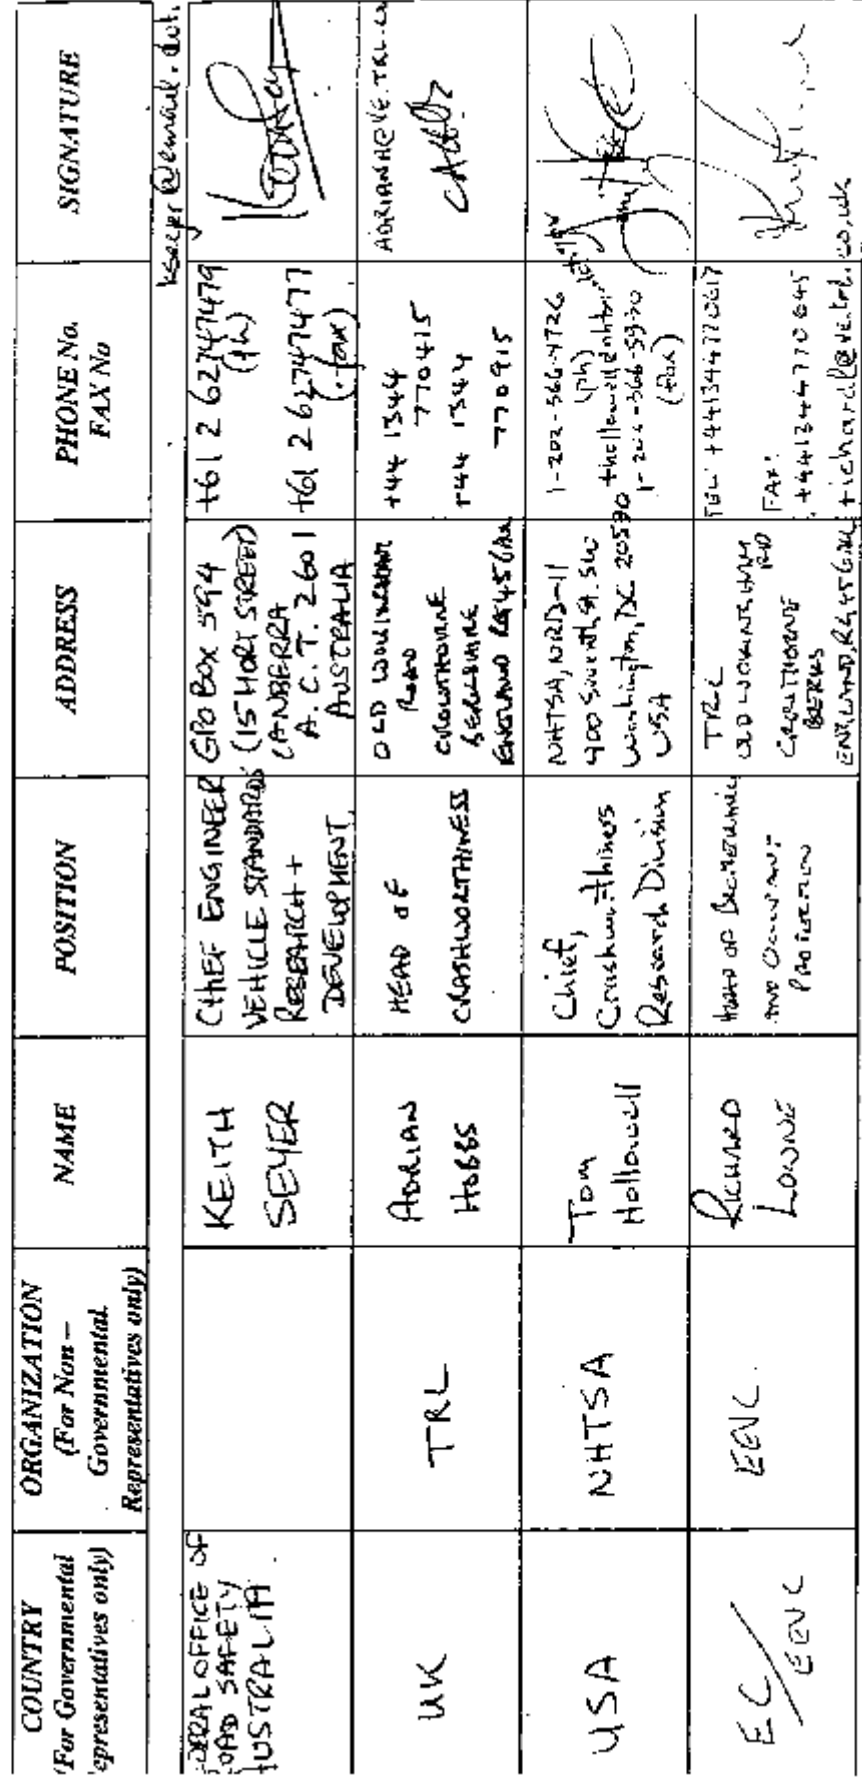 COUNTRY
(For Governmental
epresentatives only)
ORGANIZATION
(For Non –
Governmental
Representatives only)
NAME
POSITION
ADDRESS
PHONE No.
FAX No
SIGNATURE
DERAL OFFICE OF
OAD SAFETY
AUSTRALIA.
KEITH
SEYER
CHIEF ENGINEER
VEHICLE STANDARDS
RESEARCH +
DEVELOPMENT
GPO BOX 594
(15 MORT STREET)
CANBERRA
A.C.T. 2601
AUSTRALIA
+61 2 62747479
(ph)
+61 2 62747477
(fax)
UK
TRL
ADRIAN
HOBBS
HEAD OF
CRASHWORTHINESS
OLD WOKINGHAM
ROAD
CROWTHORNE
BERKSHIRE
ENGLAND RG45 6AU
+44 1344
770415
+44 1344
770915
USA
NHTSA
Tom
Hollowell
Chief,
Crashworthiness
Research Division
NHTSA, NRD-11
400 Seventh St. SW
Washington, DC 20590
USA
1-202-366-4726
(ph)
(fax)
EC/
EEVC
EEVC.
RICHARD
LOWNE
HEAD OF BIOMECHANICS
AND OCCUPANT
PROTECTION
TRL
OLD WOKINGHAM
RD
CROWTHORNE
BERKS
ENGLAND, RG45 6AU
TEL: +441344770617
FAX:
+441344770645
richardl@ve.trl.co.uk